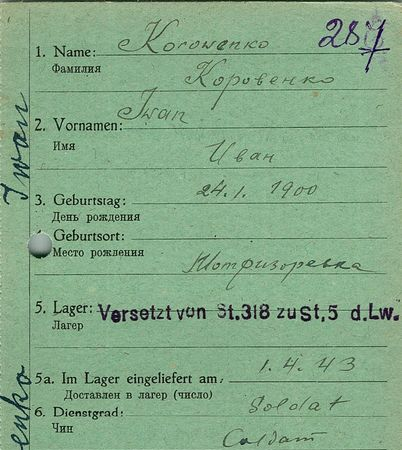 287
1. Name: Korowenko
Фамилия
Коровенко
2. Vornamen: Iwan
Имя
Иван
3. Geburtstag: 24.1. 1900
День рождения
4. Geburtsort:
Место рождения
5. Lager: Versetzt von St.318 zu St.5 d.Lw.
Лагерь
1.4.43
5a. Im Lager eingeliefert am:
Доставлен в лагерь (число)
6. Dienstgrad: Soldat
Чин
Солдат
Iwan
enko